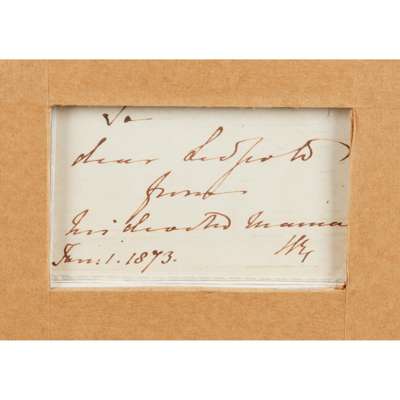 To
dear Leopold
from
his devoted Mama
Jan: 1. 1873. VRI